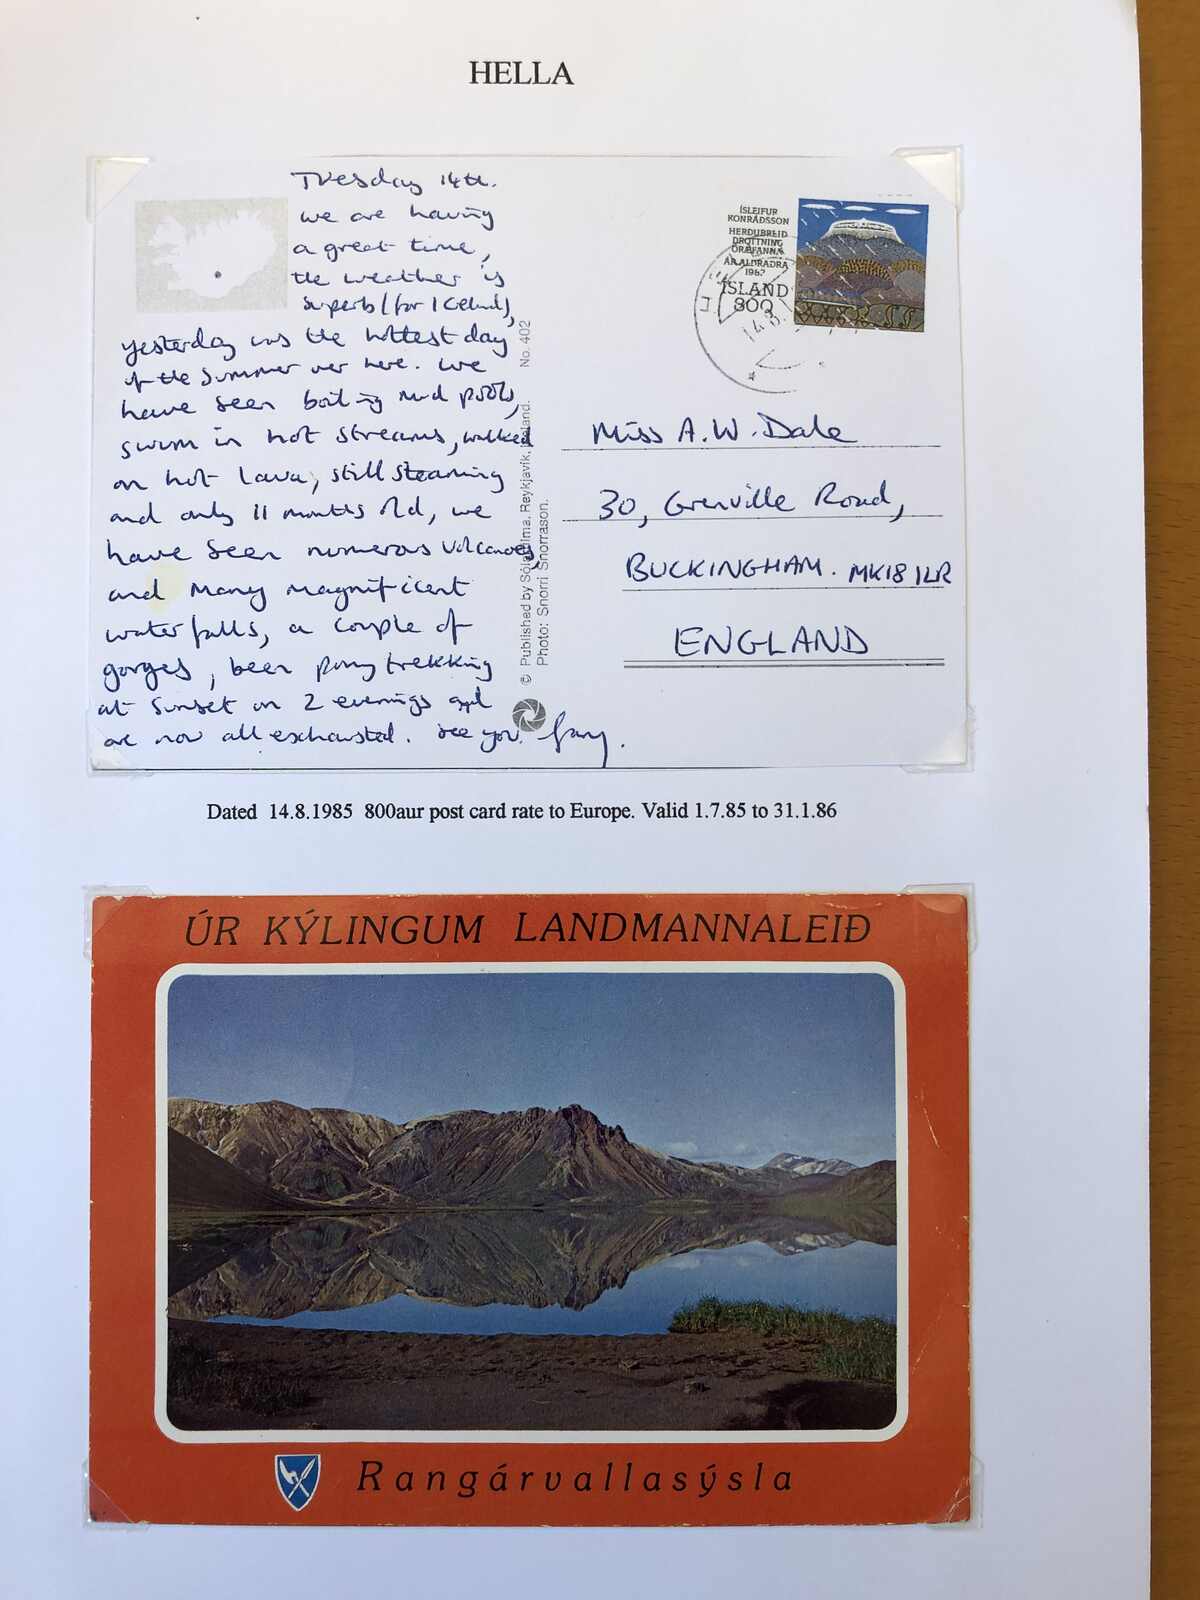 HELLA
Tuesday 14th.
we are having
a great time,
the weather is
superb (for Iceland),
yesterday was the hottest day
of the summer over here. We
have seen boiling mud pools,
swum in hot streams, walked
on hot lava, still steaming
and only 11 months old, we
have seen numerous volcanoes,
and many magnificent
waterfalls, a couple of
gorges, been pony trekking
at sunset on 2 evenings and
are now all exhausted. See you
© Published by Sólarfilma, Reykjavík, Iceland. No. 402
Photo: Snorri Snorrason.
ÍSLEIFUR
KONRÁÐSSON
HERÐUBREIÐ
DROTTNING
ÖRÆFANNA
ÍSLAND
800
Miss A.W. Dale
30, Grenville Road,
BUCKINGHAM. MK18 1LR
ENGLAND
Dated 14.8.1985 800aur post card rate to Europe. Valid 1.7.85 to 31.1.86
ÚR KÝLINGUM LANDMANNALEIÐ
Rangárvallasýsla